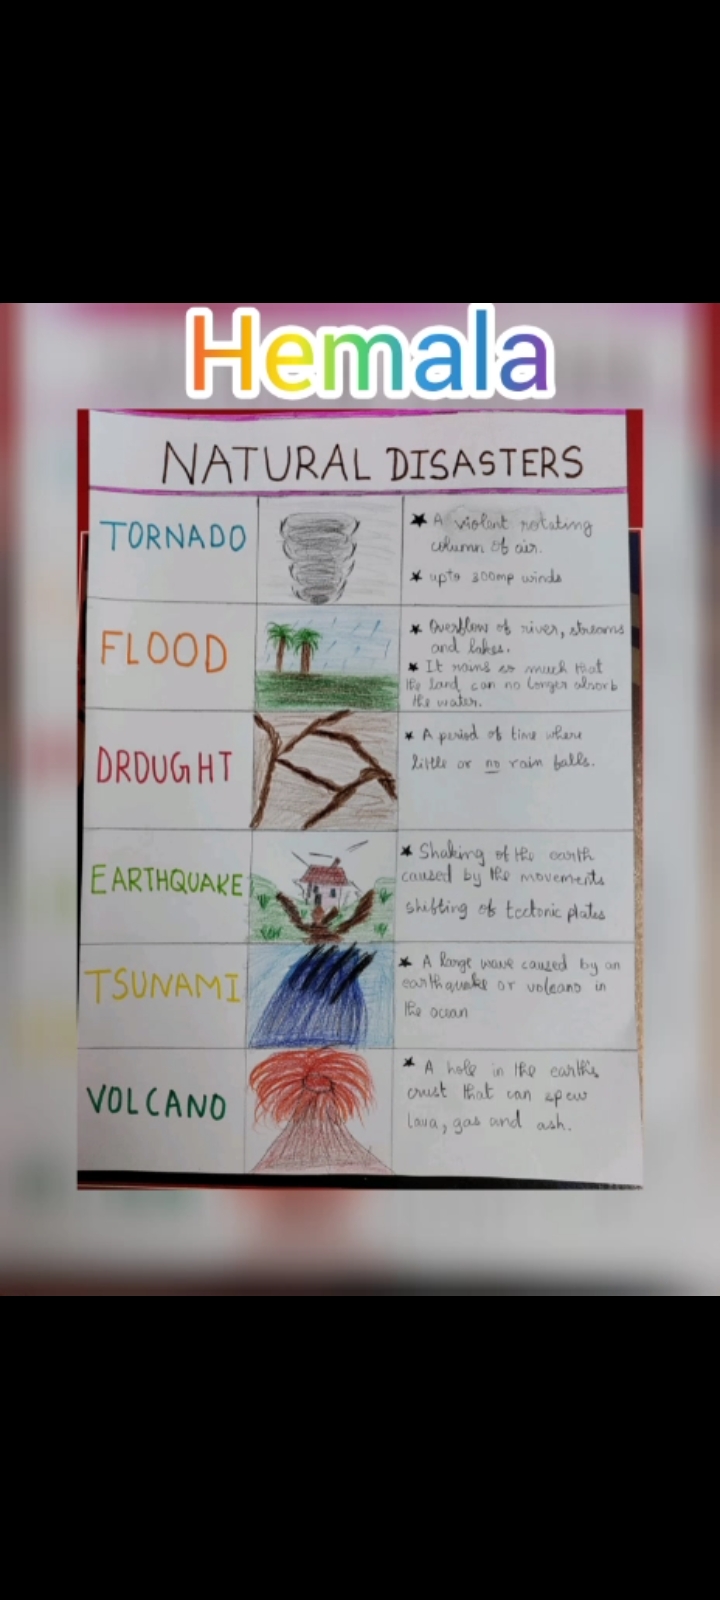 Hemala
NATURAL DISASTERS
TORNADO
★ A violent rotating
column of air.
★ upto 300mp winds
FLOOD
★ Overflow of river, streams
and lakes.
★ It rains so much that
the land can no longer absorb
the water.
DROUGHT
★ A period of time where
little or no rain falls.
EARTHQUAKE
★ Shaking of the earth
caused by the movements
shifting of tectonic plates
TSUNAMI
★ A large wave caused by an
earthquake or volcano in
the ocean
VOLCANO
★ A hole in the earth's
crust that can spew
lava, gas and ash.